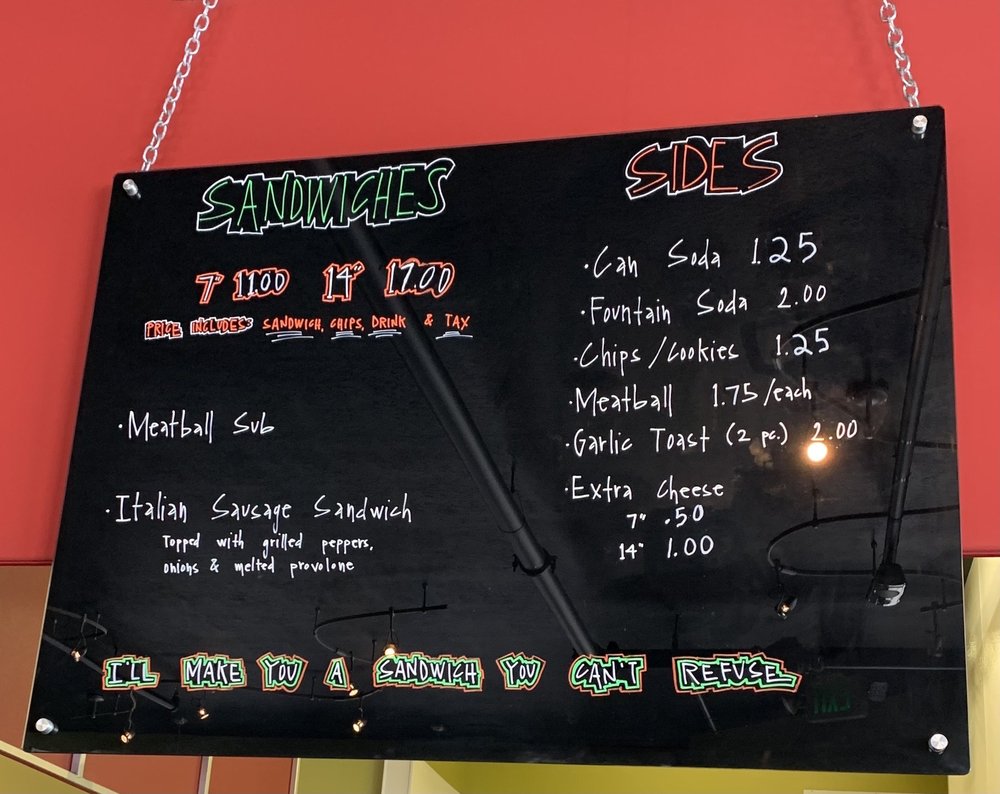 SANDWICHES
7" 11.00 14" 17.00
PRICE INCLUDES: SANDWICH, CHIPS, DRINK & TAX
·Meatball Sub
·Italian Sausage Sandwich
Topped with grilled peppers,
onions & melted provolone
SIDES
·Can Soda 1.25
·Fountain Soda 2.00
·Chips/Cookies 1.25
·Meatball 1.75/each
·Garlic Toast (2 pc.) 2.00
·Extra Cheese
7" .50
14" 1.00
I'LL MAKE YOU A SANDWICH YOU CAN'T REFUSE